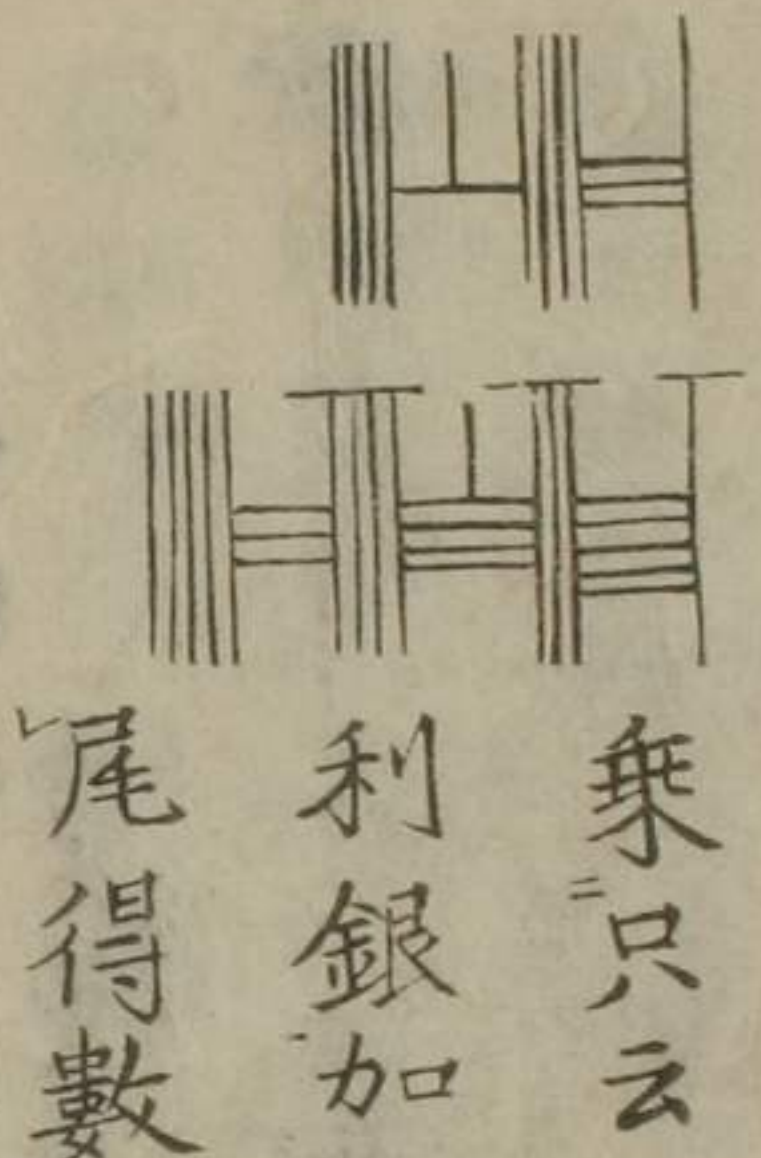 乗只云
利銀加
尾得數